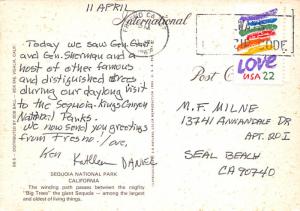 11 APRIL
International
Today we saw Gen. Grant
and Gen. Sherman and a
host of other famous
and distinguished trees
during our daylong visit
to the Sequoia-Kings Canyon
National Parks.
We now send you greetings
from Fresno! Love,
Ken Kathleen DANIEL
SEQUOIA NATIONAL PARK
CALIFORNIA
The winding path passes between the mighty
"Big Trees" the giant Sequoia — among the largest
and oldest of living things.
FRESNO CA
CODE
LOVE
USA 22
Post
M.F. MILNE
13741 ANNANDALE DR
APT. 20I
SEAL BEACH
CA 90740